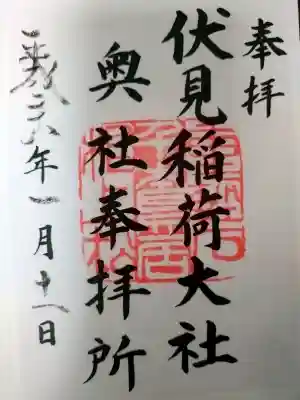 奉拝
伏見稲荷大社
奥社奉拝所
平成二八年一月十一日